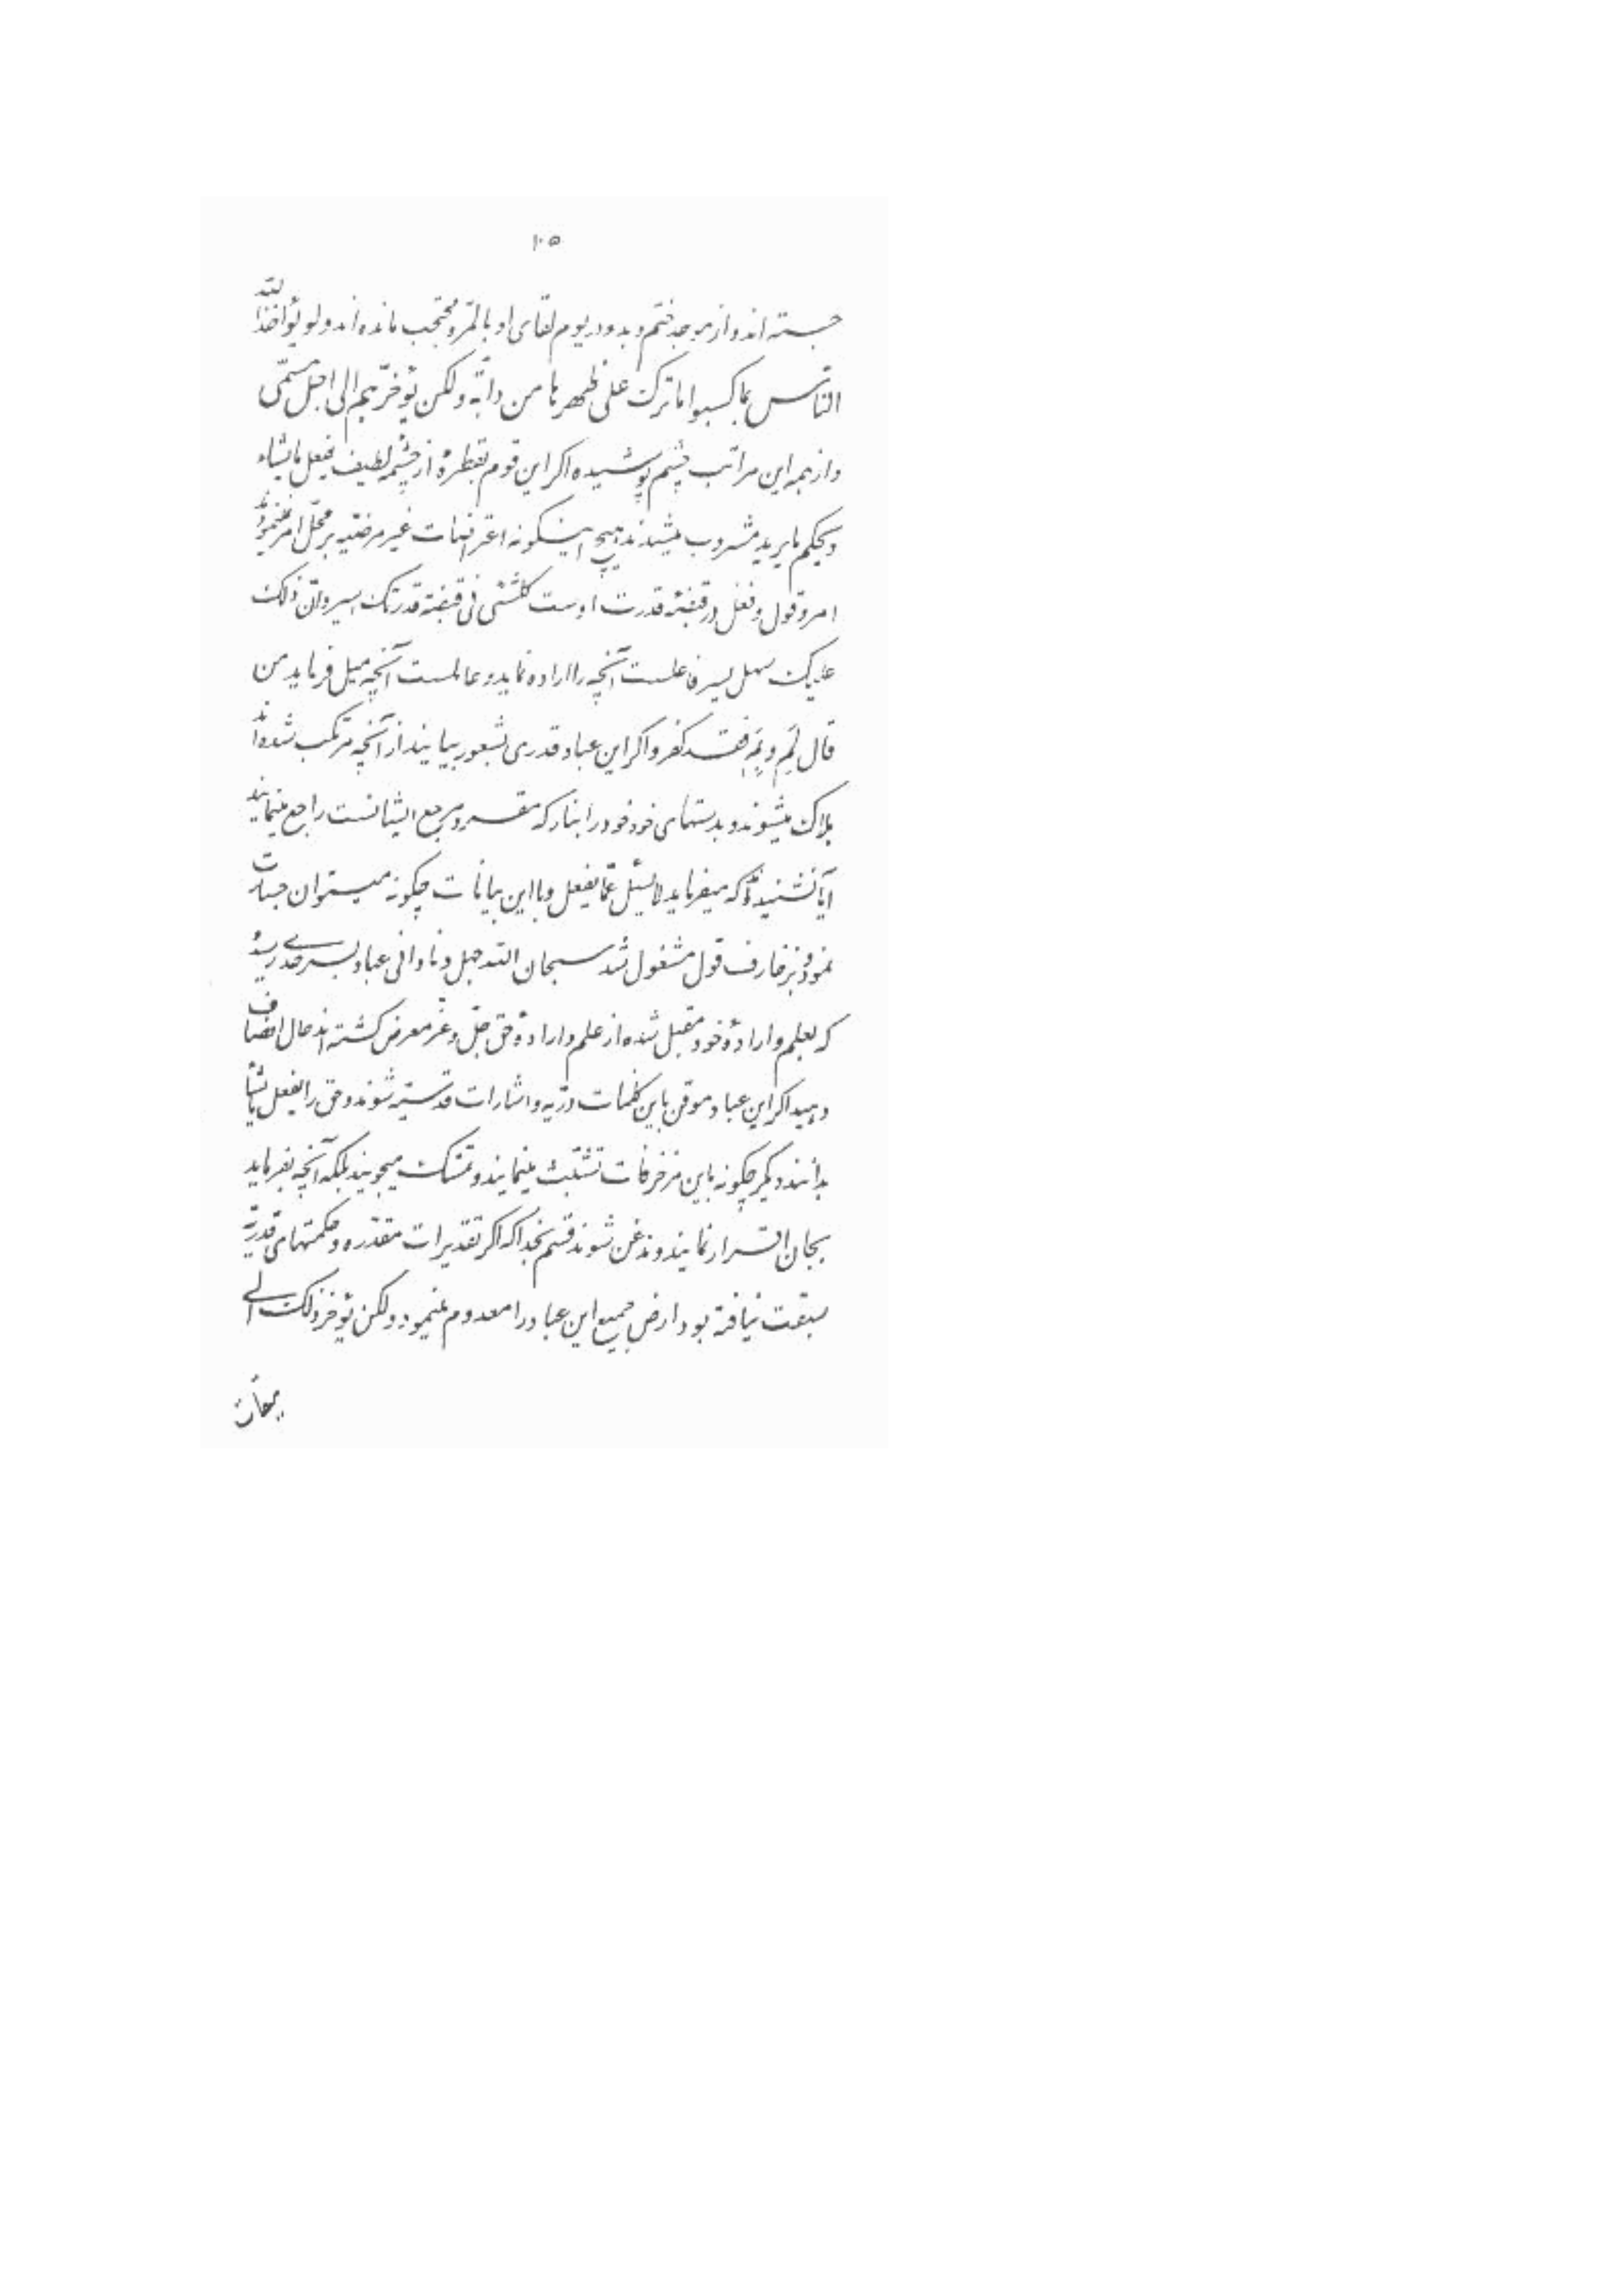 ۱۰۵
جسته‌اند و از موجد ختم و بدو در یوم لقای او بالمرّه محتجب مانده‌اند و لو یؤاخذ اللّه
النّاس بما کسبوا ما ترک علی ظهرها من دابّة ولکن یؤخّرهم الی اجل مسمّی
و از همه این مراتب چشم پوشیده اگر این قوم بقطرهٔ از چشمه لطیف یفعل ما یشاء
و یحکم ما یرید مشروب میشدند هیچ اینگونه اعتراضات غیر مرضیّه بر محلّ امر نمینمودند
امر و قول و فعل در قبضهٔ قدرت اوست کلّشیئ فی قبضة قدرتک اسیر و انّ ذلک
علیک سهل یسیر فاعلست آنچه را اراده نماید و عاملست آنچه میل فرماید من
قال لِمَ و بِمَ فقد کفر و اگر این عباد قدری بشعور بیایند از آنچه مرتکب شده‌اند
هلاک میشوند و بدستهای خود خود را بنار که مقر و مرجع ایشانست راجع مینمایند
آیا نشنیده‌اند که میفرماید لا یسئل عمّا یفعل و با این بیانات چگونه میتوان جسارت
نمود و بزخارف قول مشغول شد سبحان اللّه جهل و نادانی عباد بسر حدّی رسیده
که بعلم و ارادهٔ خود مقبل شده از علم و ارادهٔ حق جلّ و عزّ معرض گشته‌اند حال انصاف
دهید اگر این عباد موقن باین کلمات درّیه و اشارات قدسیّه شوند و حق را یفعل ما یشأ
بدانند دیگر چگونه باین مزخرفات تشبّث مینمایند و تمسّک میجویند بلکه آنچه بفرماید
بجان اقرار نمایند و مذعن شوند قسم بخدا که اگر تقدیرات مقدّره و حکمتهای قدریّه
سبقت نیافته بود ارض جمیع این عباد را معدوم مینمود ولکن یؤخّر ذلک الی
میقات